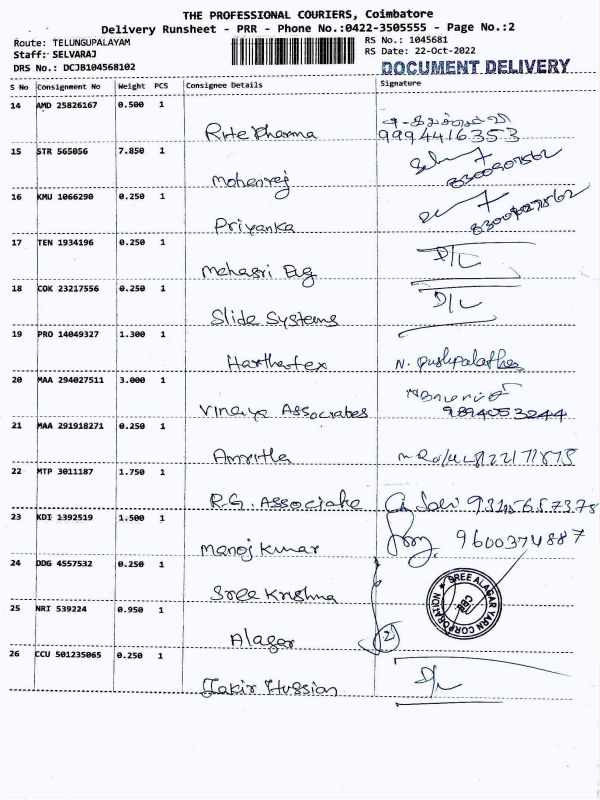 THE PROFESSIONAL COURIERS, Coimbatore
Delivery Runsheet - PRR - Phone No.:0422-3505555 - Page No.:2
Route: TELUNGUPALAYAM
RS No.: 1045681
Staff: SELVARAJ
RS Date: 22-Oct-2022
DRS No.: DCJB104568102
DOCUMENT DELIVERY
S No Consignment No Weight PCS Consignee Details Signature
14 AMD 25826167 0.500 1
Rite Dharma
9994416353
15 STR 565056 7.850 1
Mohanraj
16 KMU 1066290 0.250 1
Priyanka
17 TEN 1934196 0.250 1
Mehasri Eng
D/L
18 COK 23217556 0.250 1
Slide Systems
D/L
19 PRO 14049327 1.300 1
Harthatex N. Pushpalatha
20 MAA 294027511 3.000 1
Vinaya Associates 9894053244
21 MAA 291918271 0.250 1
Amritha
22 MTP 3011187 1.750 1
R.G. Associate
23 KDI 1392519 1.500 1
Manoj Kumar 9600374887
24 DDG 4557532 0.250 1
Sree Krishna
SREE ALAGAR YARN CORPORATION
CBE
25 NRI 539224 0.950 1
Alager 2
26 CCU 501235065 0.250 1
Jakir Hussian D/L